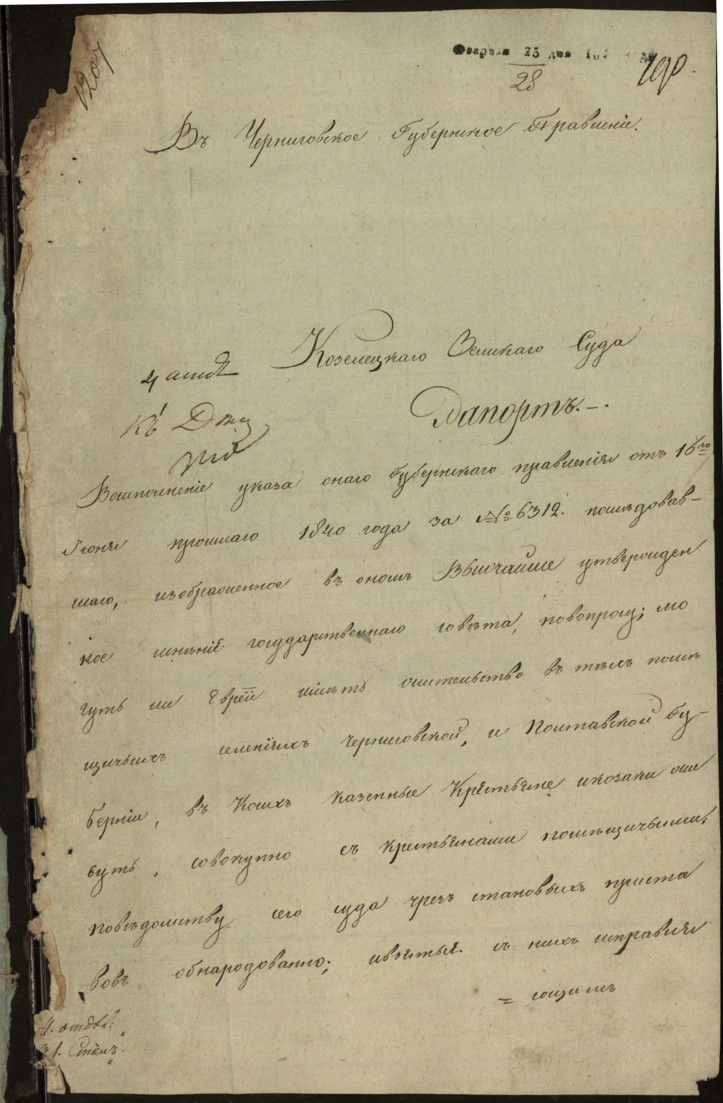 1207
Февраля 23 дня
28
Въ Черниговское Губернское Правленіе.
Козелецкаго Земскаго Суда
Рапортъ.
Воисполненіе указа онаго Губернскаго правленія отъ 16го
Іюня прошлаго 1840 года за №6312. послѣдовав-
шаго, изображенное въ ономъ Высочайше утвержден
ное мнѣніе государственнаго совѣта, повопросу; мо
гутъ ли Евреи имѣть жительство въ тѣхъ помѣ
щичьихъ селеніяхъ Черниговской, и Полтавской Гу-
берніи, въ Коихъ казенные Крестьяне икозаки жи
вутъ, совокупно съ крестьянами помѣщичьими,
повѣдомству сего суда чрезъ становыхъ приста
вовъ обнародованно; ивзятые съ нихъ исправля
= ющимъ
4. отдѣл:
1. Столъ.